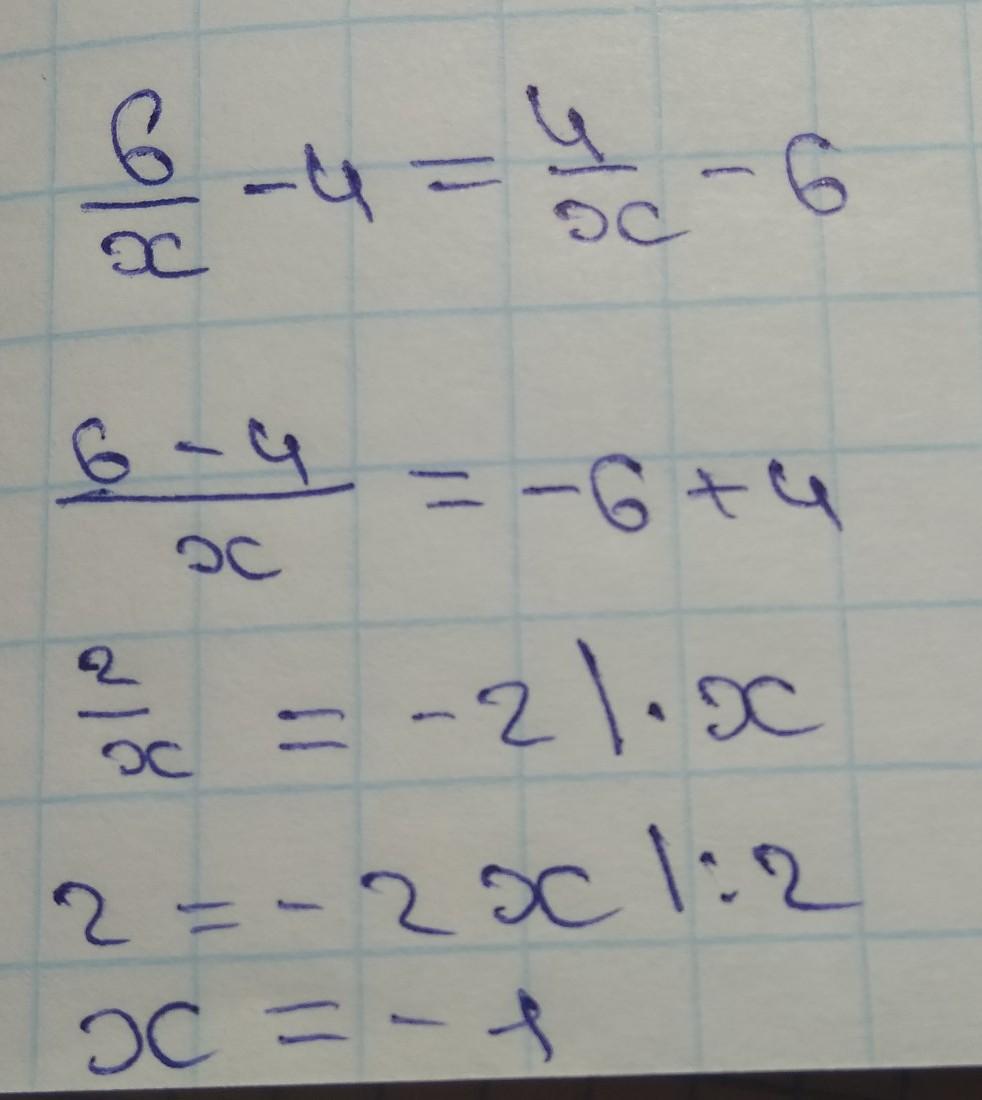 6/x - 4 = 4/x - 6
(6 - 4)/x = -6 + 4
2/x = -2 | · x
2 = -2x | : 2
x = -1